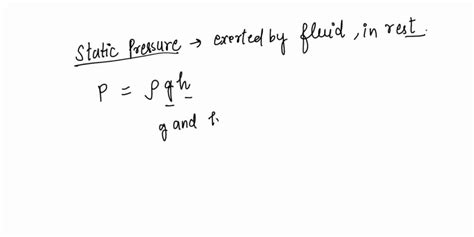 Static Pressure → exerted by fluid, in rest.
P = ρgh
g and